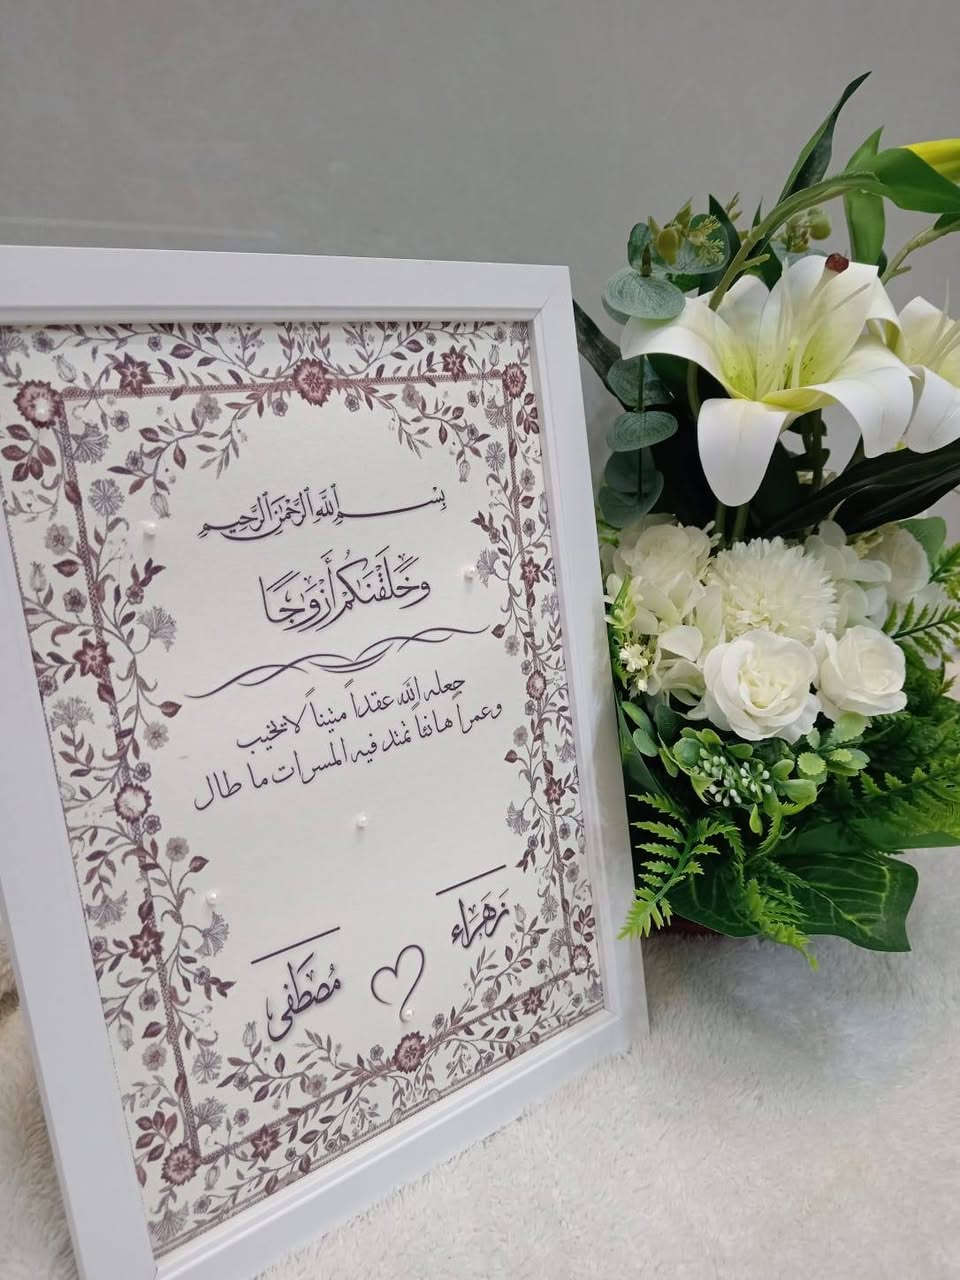 بِسْمِ ٱللَّهِ ٱلرَّحْمَٰنِ ٱلرَّحِيمِ
وَخَلَقْنَٰكُمْ أَزْوَٰجًا
جعله الله عقداً متيناً لا يخيب
وعمراً هانئاً تمتد فيه المسرات ما طال
زَهَرَاء
مُصْطَفَى